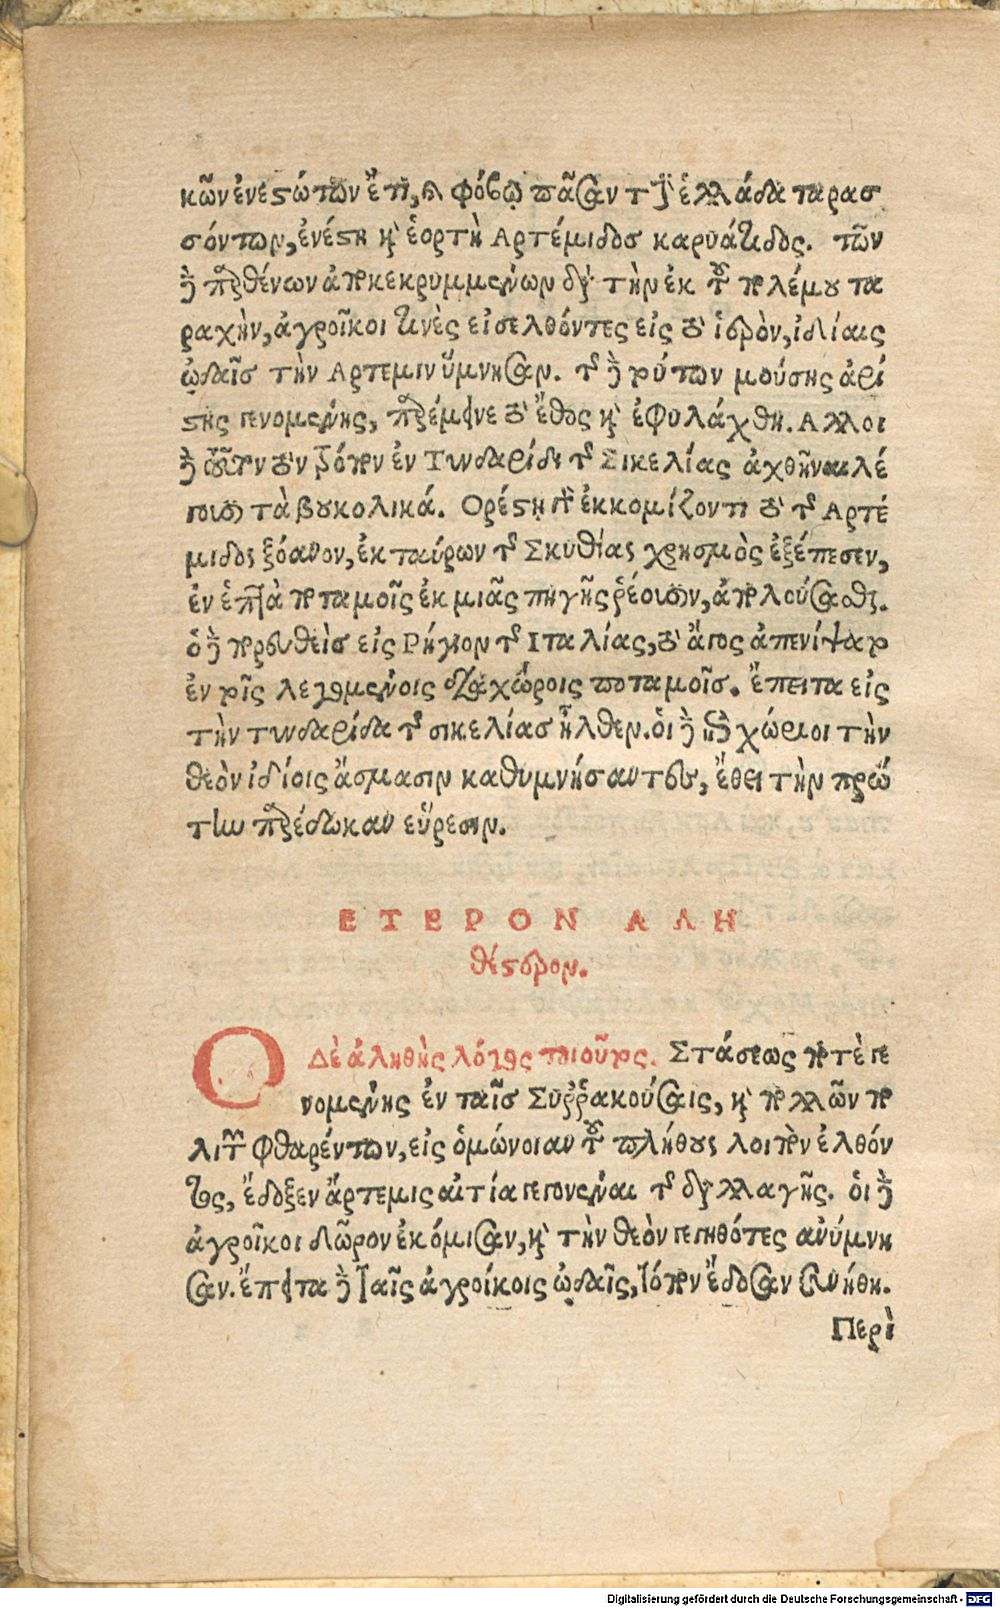 κῶν ἐνεστώτων ἔτι, καὶ φόβῳ πᾶσαν τὴν ἑλλάδα ταρασ
σόντων, ἐνέστη καὶ ἑορτὴ Αρτέμιδοσ καρυάτιδος. τῶν
δὲ παρθένων ἀποκεκρυμμένων διὰ τὴν ἐκ τοῦ πολέμου τα
ραχὴν, ἀγροῖκοι τινὲς εἰσελθόντες εἰς τὸ ἱερὸν, ἰδίαις
ᾠδαῖσ τὴν Αρτεμιν ὕμνησαν. τῆς δὲ τούτων μούσης ἀρί
στης γενομένης, παρέμεινε τὸ ἔθος καὶ ἐφυλάχθη. Αλλοι
δὲ τοῦτον τὸν τρόπον ἐν Τυνδαρίδι τῆς Σικελίας ἀχθῆναι λέ
γουσι τὰ βουκολικά. Ορέστη γὰρ ἐκκομίζοντι τὸ τῆς Αρτέ
μιδος ξόανον, ἐκ ταύρων τῆς Σκυθίας χρησμὸς ἐξέπεσεν,
ἐν ἑπτὰ ποταμοῖς ἐκ μιᾶς πηγῆς ῥέουσιν, ἀπολούσασθαι.
ὁ δὲ πορευθεὶσ εἰς Ρήγιον τῆς Ιταλίας, τὸ ἄγος ἀπενίψατο
ἐν τοῖς λεγομένοις διαχώροις ποταμοῖσ. ἔπειτα εἰς
τὴν τυνδαρίδα τῆς σικελίασ ἦλθεν. οἱ δὲ ἐπιχώριοι τὴν
θεὸν ἰδίοις ἄσμασιν καθυμνήσαντες, ἔθει τὴν πρώ
την παρέδωκαν εὕρεσιν.
ΕΤΕΡΟΝ ΑΛΗ
θέστερον.
Ο ΔΕ ἀληθὴς λόγος τοιοῦτος. Στάσεως ποτὲ γε
νομένης ἐν ταῖσ Συῤῥακούσαις, καὶ πολλῶν πο
λιτῶν φθαρέντων, εἰς ὁμόνοιαν τοῦ πλήθους λοιπὸν ἐλθόν
τες, ἔδοξεν ἄρτεμις αἰτία γεγονέναι τῆς διαλλαγῆς. οἱ δὲ
ἀγροῖκοι δῶρον ἐκόμισαν, καὶ τὴν θεὸν γεγηθότες ἀνύμνη
σαν. ἔπειτα δὲ ταῖς ἀγροίκοις ᾠδαῖς, τόπον ἔδοσαν συνήθη.
Περὶ
Digitalisierung gefördert durch die Deutsche Forschungsgemeinschaft - DFG